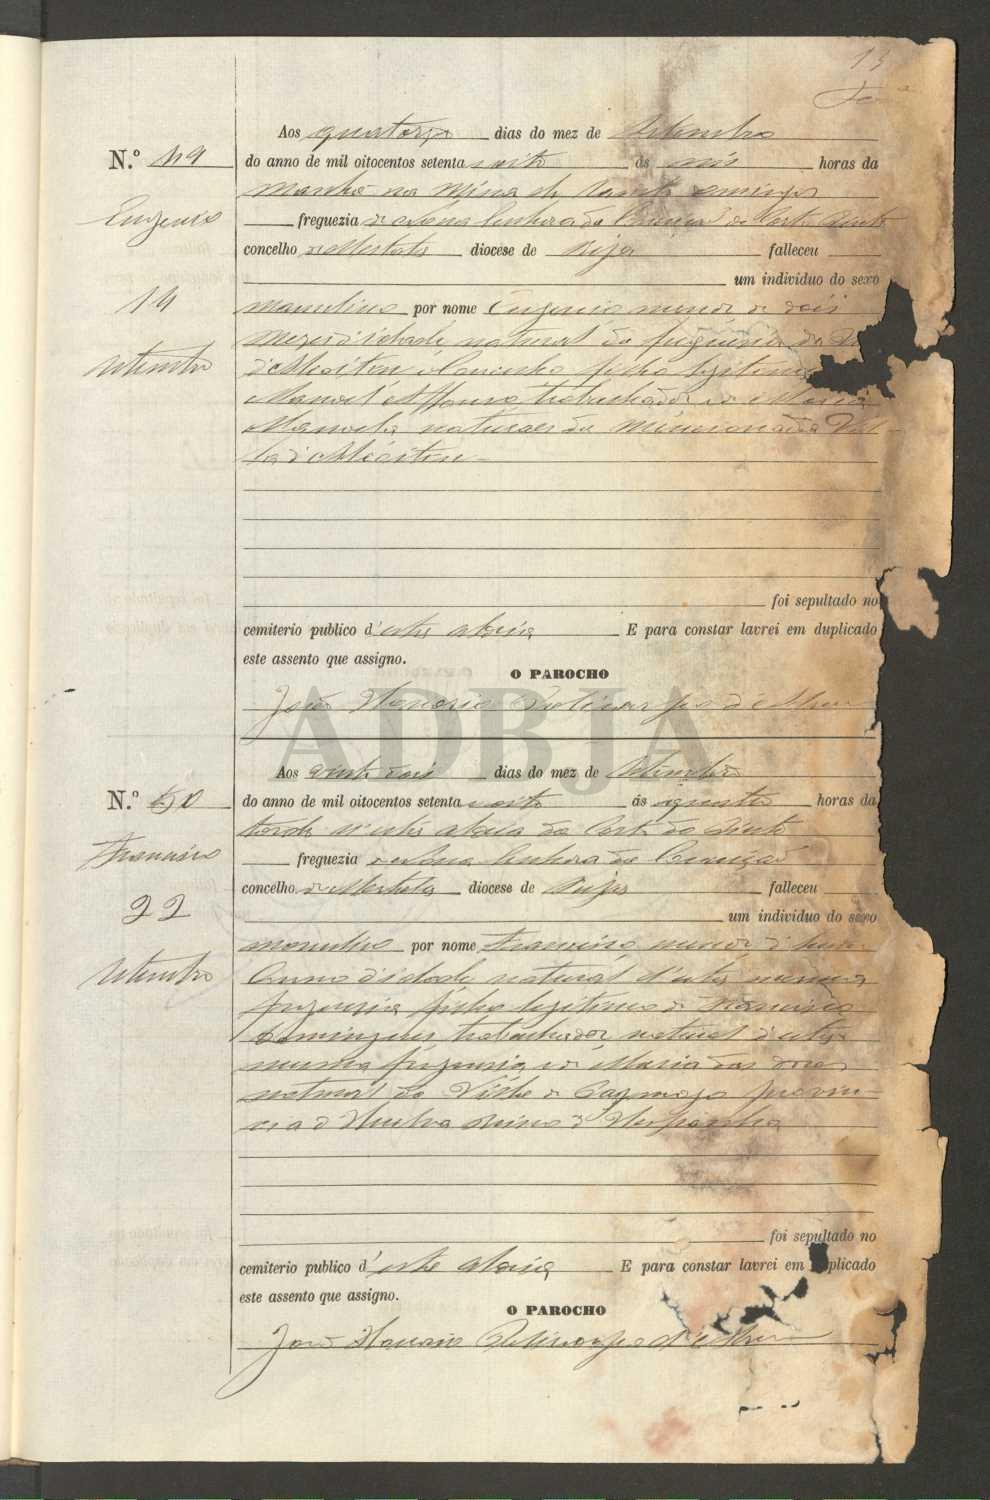 13
Aos quatorze dias do mez de Setembro
N.º 49
do anno de mil oitocentos setenta e oito ás seis horas da
manhã na Mina de Santo Domingos
Eugenio
freguezia de Nossa Senhora da Conceição de Corte Pinto
concelho de Mertola diocese de Beja falleceu
um individuo do sexo
14
masculino por nome Eugenio menor de dois
mezes d'idade natural da freguezia da
Setembro
filho legitimo
Manoel Affonso trabalhador e de Maria
Manoela naturaes da mencionada Vil-
la d'
foi sepultado no
cemiterio publico d'esta aldeia E para constar lavrei em duplicado
este assento que assigno.
O PAROCHO
João Honorio Policarpo d'
ADBJA
Aos vinte dois dias do mez de Setembro
N.º 50
do anno de mil oitocentos setenta e oito ás quatro horas da
tarde n'esta aldeia da Corte do Pinto
Francisco
freguezia de Nossa Senhora da Conceição
concelho de Mertola diocese de Beja falleceu
22
um individuo do sexo
masculino por nome Francisco menor d'hum
Setembro
anno d'idade natural d'esta mesma
freguezia filho legitimo de Francisco
Domingues trabalhador natural d'esta
mesma freguezia e de Maria das Dores
natural da provin-
cia d'Huelva Reino d'Hespanha
foi sepultado no
cemiterio publico d'esta aldeia E para constar lavrei em duplicado
este assento que assigno.
O PAROCHO
João Honorio Policarpo d'